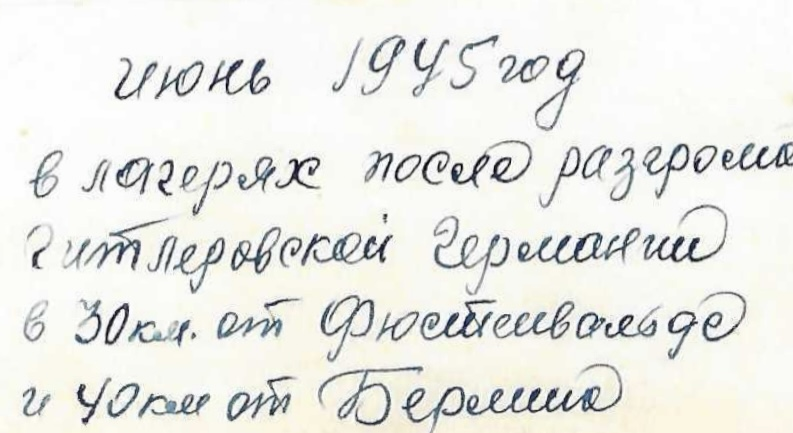 июнь 1945 год
в лагерях после разгрома
гитлеровской Германии
в 30 км. от Фюстенвальде
и 40 км от Берлина